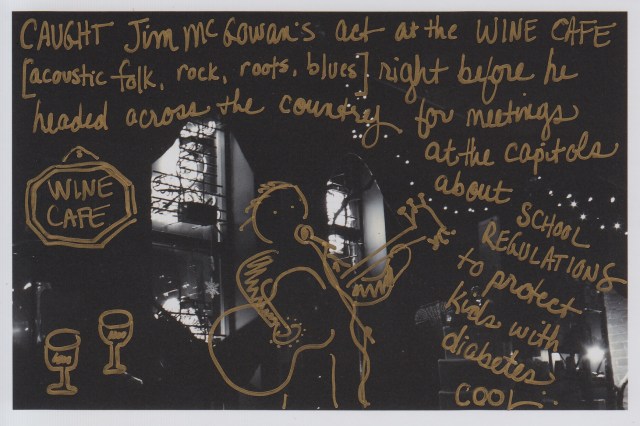 CAUGHT Jim McGowan's act at the WINE CAFE
[acoustic folk, rock, roots, blues] right before he
headed across the country for meetings
at the capitols
about SCHOOL
REGULATIONS
to protect
kids with
diabetes
COOL.
WINE
CAFE